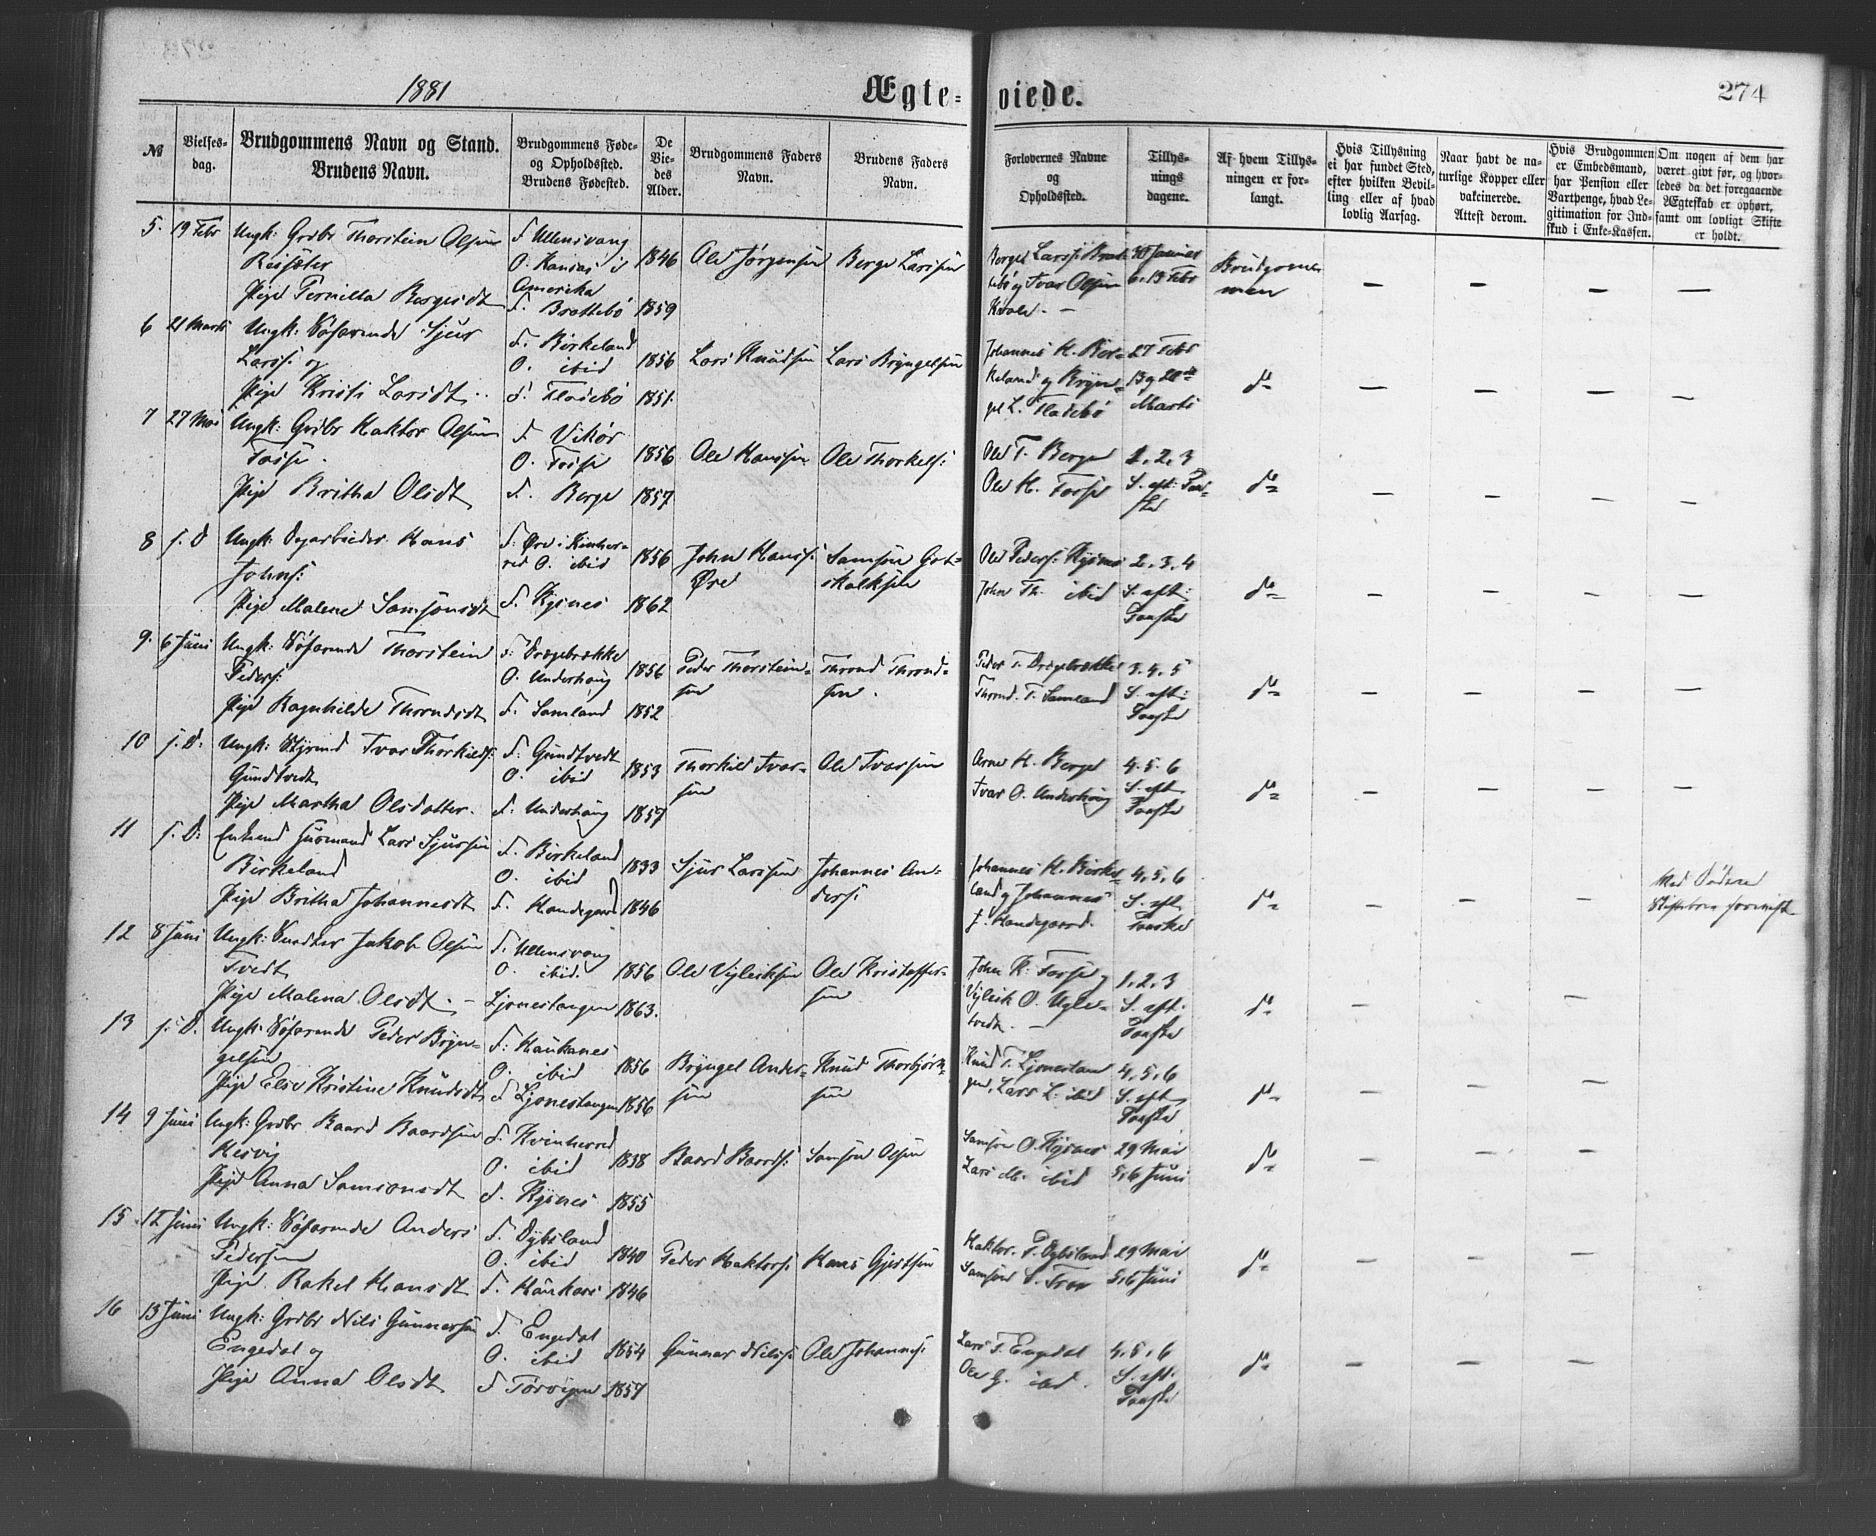 1881 Ægte- viede. 274
№
Vielses-
dag.
Brudgommens Navn og Stand.
Brudens Navn.
Brudgommens Føde-
og Opholdssted.
Brudens Fødested.
De
Vie-
des
Alder.
Brudgommens Faders
Navn.
Brudens Faders
Navn.
Forlovernes Navne
og
Opholdssted.
Tillys-
nings
dagene.
Af hvem Tillys-
ningen er for-
langt.
Hvis Tillysning
ei har fundet Sted,
efter hvilken Bevil-
ling eller af hvad
lovlig Aarsag.
Naar havt de na-
turlige Kopper eller
vakcinerede.
Attest derom.
Hvis Brudgommen
er Embedsmand,
har Pension eller
Vartpenge, hvad Le-
gitimation for Ind-
skud i Enke-Kassen.
Om nogen af dem har
været givt før, og hvor-
ledes da det foregaaende
Ægteskab er ophørt,
samt om lovligt Skifte
er holdt.
5. 19 Febr Ungk: Grdbr Thorstein Olsen
Reisæter
Pige Pernilla Bergesdt
F. Ullensvang
O. Kansas i
Amerika
F. Brattebø
1846
1859
Ole Jørgensen
Berge Larssen
Berge Larss: Brat-
tebø og Ivar Olsen
30 Januar
6. 13 Febr
Brudgom-
men
6 21 Marts Ungk: Søfarende Sjur
Larss: og
Pige Kristi Larsdt.
F. Birkeland
O. ibid
F. Fladebø
1856
1851
Lars Knudsen
Lars Bryngelsen
Johannes H. Bir-
keland og Bryn-
gel L. Fladebø
27 Febr
13 og 20de
Marts
do
7 27 Mai Ungk: Grdbr Haktor Olsen
Fosse.
Pige Britha Olsdt
F. Vikør
O. Fosse
F. Berge
1856
1857
Ole Hanssen
Ole Thorkels:
Ole T. Berge
Ole H. Fosse
1, 2, 3
S. eft: Paa-
ske
do
8 s. D Ungk: Dagarbeider Hans
Johns:
Pige Malene Samsonsdt
F. Øre i Kvinher-
red O. ibid
F. Rysnes
1856
1862
John Hanss:
Øre
Samson Got-
skalksen
Ole Peders: Rysnes
John Th. ibid
2, 3, 4
S. eft:
Paaske
do
9. 6 Juni Ungk: Søfarende Thorstein
Peders:
Pige Ragnhilde Throndsdt
F. Drægebrække
O. Underhaug
F. Samland
1856
1852
Peder Thorstein-
sen
Thrond Thrond-
sen.
Peder T. Drægebrække
Thrond. T. Samland
3. 4. 5
S. eft:
Paaske
do
10 s. D. Ungk: Styrmd Ivar Thorkilds:
Gundtvedt
Pige Martha Olsdatter.
F. Gundtvedt
O. ibid
F. Underhaug
1853
1857
Thorkild Ivar-
sen
Ole Ivarsen
Arne H. Berge
Ivar O. Underhaug
4. 5. 6
S. eft.
Paaske
do
11 s. D: Enkemd Husmand Lars Sjursen
Birkeland
Pige Britha Johannesdt
F. Birkeland
O. ibid
F. Handegaard
1833
1846
Sjur Larssen
Johannes An-
ders:
Johannes H. Birke-
land og Johannes
J. Handegaard.
4, 5, 6
S. eft.
Paaske
do
Med Døden
12 8 Juni Ungk: Snedker Jakob Olsen
Tvedt
Pige Malena Olsdt.
F. Ullensvang
O. ibid.
Ljonestangen
1856
1863.
Ole Vigleiksen
Ole Kristoffer-
sen
John K. Fosse og
Vigleik O.
tvedt.
1, 2, 3
S. eft.
Paaske
do
13 s. D. Ungk: Søfarende Peder Bryn-
gelsen
Pige Else Kristine Knudsdt
F: Haukanes
O. ibid
F Ljonestangen
1856
1856
Bryngel Ander-
sen
Knud Thorbjørn-
sen
Knud T. Ljonestan-
gen, Lars L. ibid
4, 5, 6
S. eft.
Paaske
do
14 9 Juni Ungk: Grdbr. Baard Baardsen
Mesvig
Pige Anna Samsonsdt
F. Kvinherred
O. ibid
F. Rysnes
1838
1855
Baard Baards:
Samson Olsen
Samson O. Rysnes
Lars M. ibid
29 Mai
5, 6 Juni
do
15 12 Juni Ungk: Søfarende Anders
Pedersen
Pige Rakel Hansdt
F. Dybsland
O. ibid
F. Haukaas
1840
1846
Peder Haktors:
Hans Gjertsen
Haktor. P. Dybsland
29 Mai
5, 6 Juni
do
16 13 Juni Ungk: Grdbr Nils Gunnarsen
Engedal og
Pige Anna Olsdt
F. Engedal
O. ibid
F Torvigen
1854
1857
Gunnar Nilss:
Ole Johannes:
Lars T. Engedal
Ole G. ibd.
4, 5, 6
S. eft.
Paaske
do